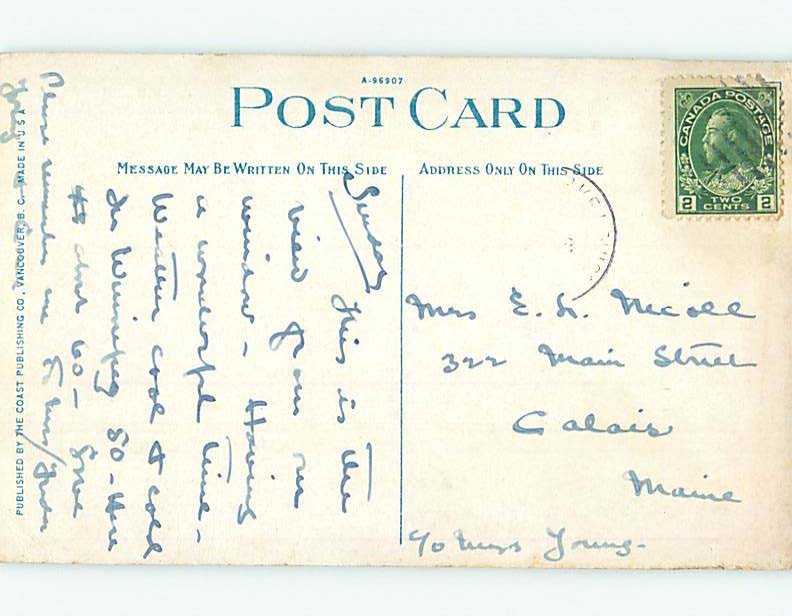 A-96907
POST CARD
MESSAGE MAY BE WRITTEN ON THIS SIDE
ADDRESS ONLY ON THIS SIDE
CANADA POSTAGE
2 TWO CENTS 2
Sunday
This is the
view from
window - Having
a wonderful time -
Weather cool & cold
In Winnipeg 80 - Here
about 60 -
Please remember me to
Mrs E. H. Nicoll
322 Main Street
Calais
Maine
c/o Mrs Young -
PUBLISHED BY THE COAST PUBLISHING CO., VANCOUVER, B. C. MADE IN U S A